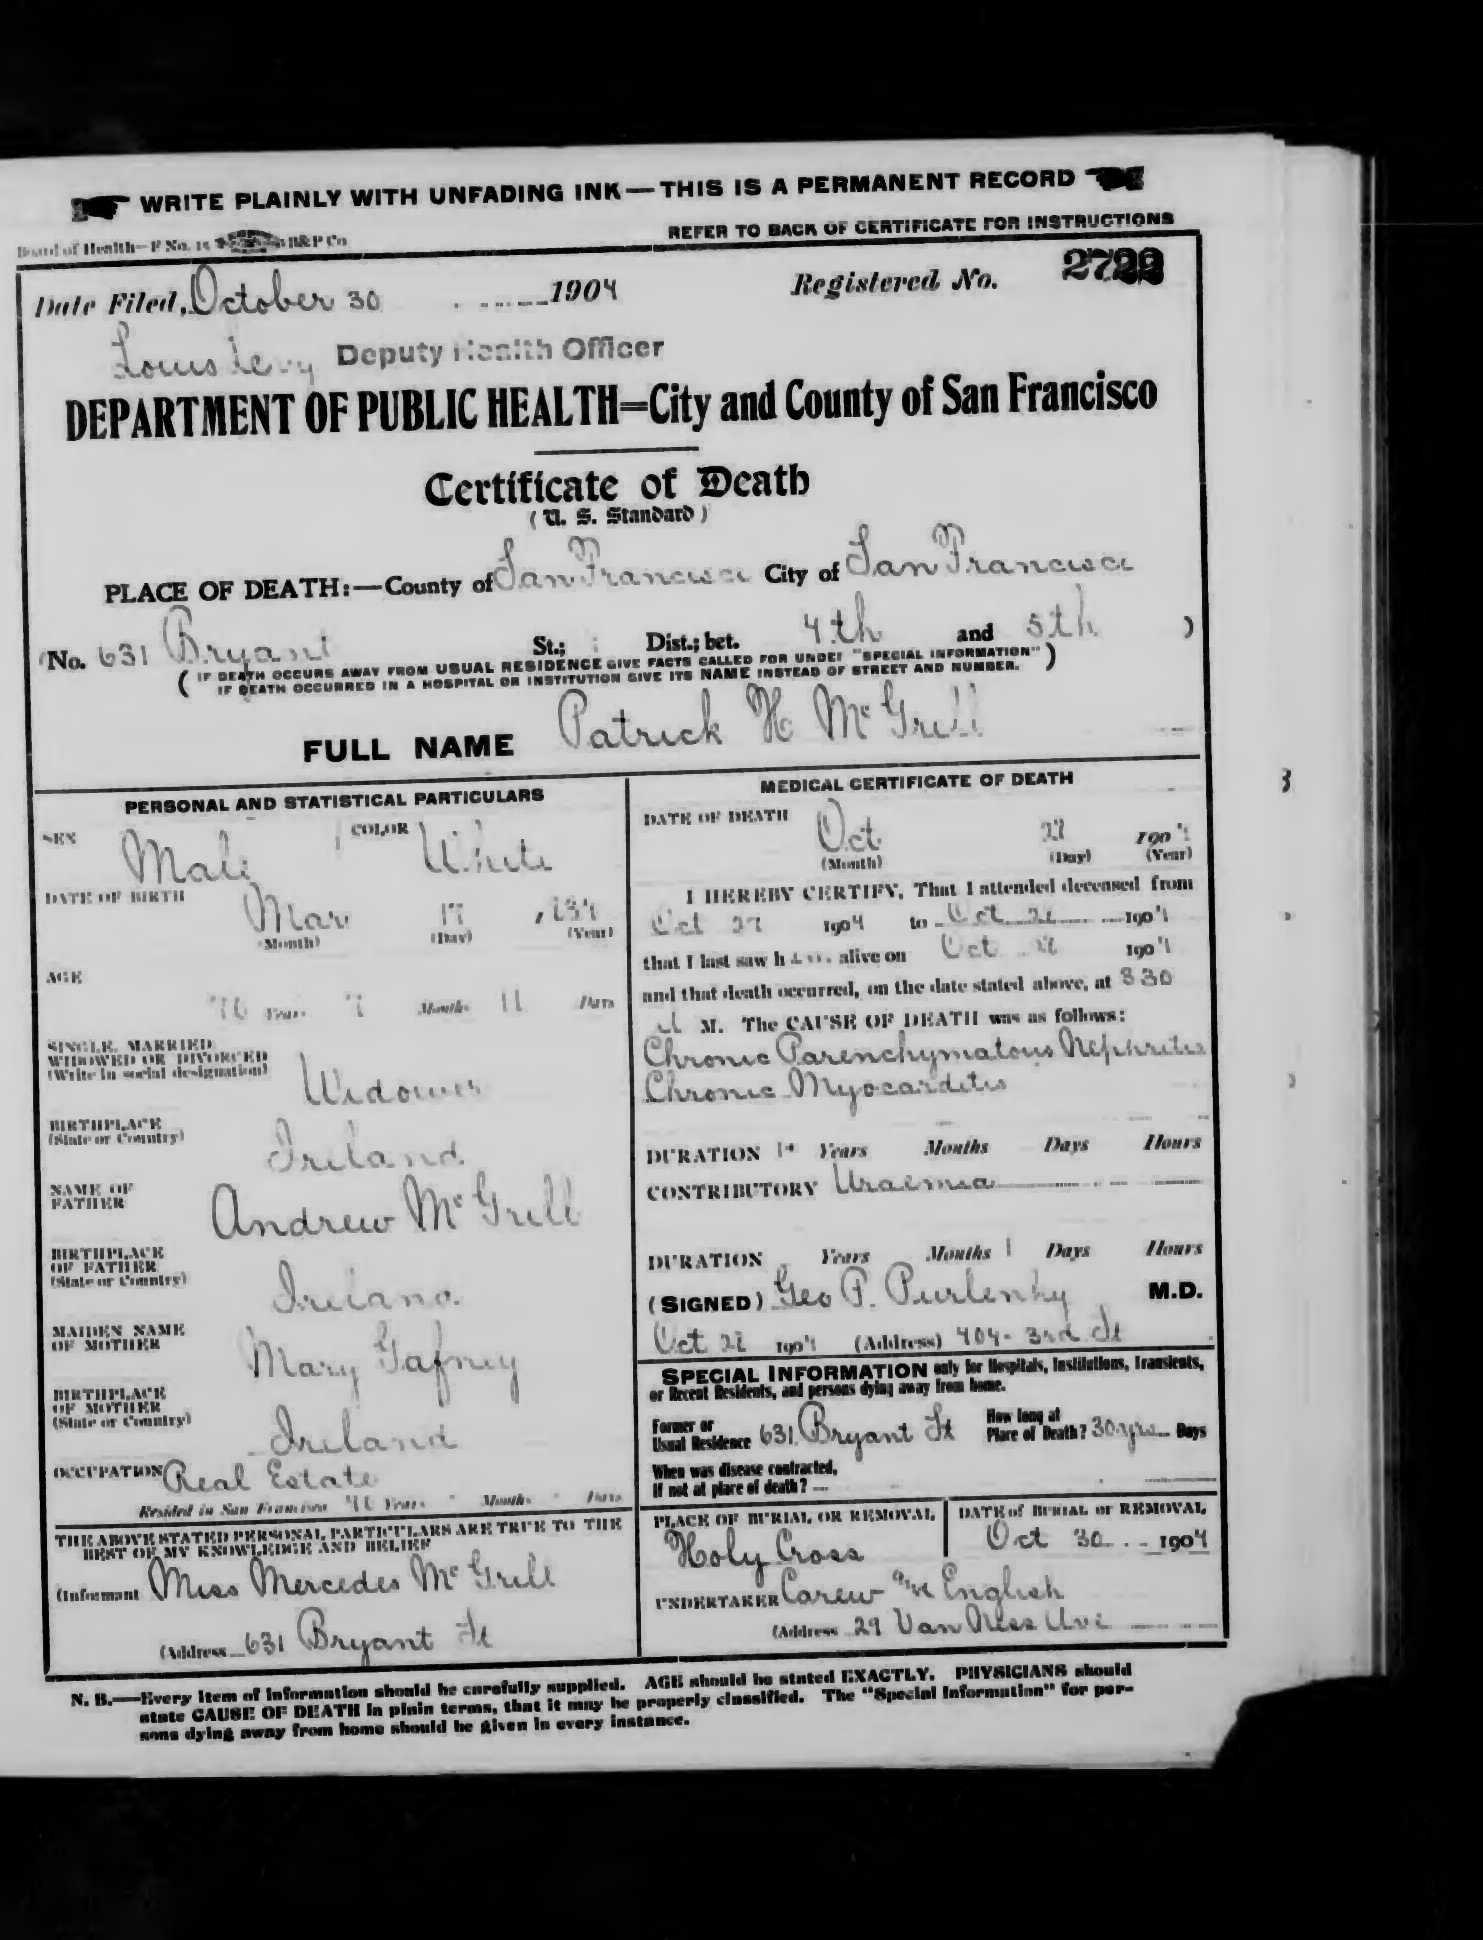 WRITE PLAINLY WITH UNFADING INK—THIS IS A PERMANENT RECORD
Board of Health—F No. 15 B&P Co
REFER TO BACK OF CERTIFICATE FOR INSTRUCTIONS
Date Filed, October 30 1904 Registered No.
Louis Levy Deputy Health Officer
DEPARTMENT OF PUBLIC HEALTH=City and County of San Francisco
Certificate of Death
(U. S. Standard)
PLACE OF DEATH:—County of San Francisco City of San Francisco
(No. 631 Bryant St.; Dist.; bet. 4th and 5th )
( IF DEATH OCCURS AWAY FROM USUAL RESIDENCE GIVE FACTS CALLED FOR UNDER "SPECIAL INFORMATION" )
IF DEATH OCCURRED IN A HOSPITAL OR INSTITUTION GIVE ITS NAME INSTEAD OF STREET AND NUMBER.
FULL NAME Patrick H McGrill
PERSONAL AND STATISTICAL PARTICULARS
SEX Male COLOR White
DATE OF BIRTH Mar 17
(Month) (Day) (Year)
AGE
Years 7 Months 11 Days
SINGLE, MARRIED,
WIDOWED OR DIVORCED
(Write in social designation) Widower
BIRTHPLACE
(State or Country) Ireland
NAME OF
FATHER Andrew McGrill
BIRTHPLACE
OF FATHER
(State or Country) Ireland
MAIDEN NAME
OF MOTHER Mary Gafney
BIRTHPLACE
OF MOTHER
(State or Country) Ireland
OCCUPATION Real Estate
Resided in San Francisco Years Months Days
THE ABOVE STATED PERSONAL PARTICULARS ARE TRUE TO THE
BEST OF MY KNOWLEDGE AND BELIEF
(Informant Miss Mercedes McGrill
(Address 631 Bryant St
MEDICAL CERTIFICATE OF DEATH
DATE OF DEATH Oct. 1904
(Month) (Day) (Year)
I HEREBY CERTIFY, That I attended deceased from
Oct 27 1904 to Oct 1904
that I last saw him alive on Oct 1904
and that death occurred, on the date stated above, at 8 30
M. The CAUSE OF DEATH was as follows:
Chronic Parenchymatous Nephritis
Chronic Myocarditis
DURATION Years Months Days Hours
CONTRIBUTORY Uraemia
DURATION Years Months 1 Days Hours
(SIGNED) Geo P. Purlenky M.D.
Oct 28 1904 (Address) 404- 3rd St
SPECIAL INFORMATION only for Hospitals, Institutions, Transients,
or Recent Residents, and persons dying away from home.
Former or
Usual Residence 631 Bryant St How long at
Place of Death? 30 yrs Days
When was disease contracted,
If not at place of death?
PLACE OF BURIAL OR REMOVAL DATE of BURIAL or REMOVAL
Holy Cross Oct 30 1904
UNDERTAKER Carew and English
(Address 29 Van Ness Ave
N. B.—Every item of information should be carefully supplied. AGE should be stated EXACTLY. PHYSICIANS should
state CAUSE OF DEATH in plain terms, that it may be properly classified. The "Special Information" for per-
sons dying away from home should be given in every instance.